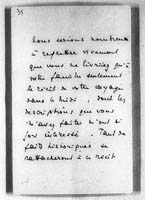 31
nous serions nombreux
à regretter vraiment
que vous ne livriez qu'à
votre famille seulement
le récit de votre voyage
dans le Midi, dont les
descriptions que vous
m'avez faites m'ont si
fort intéressé. Tant de
faits historiques se
rattacheront à ce récit